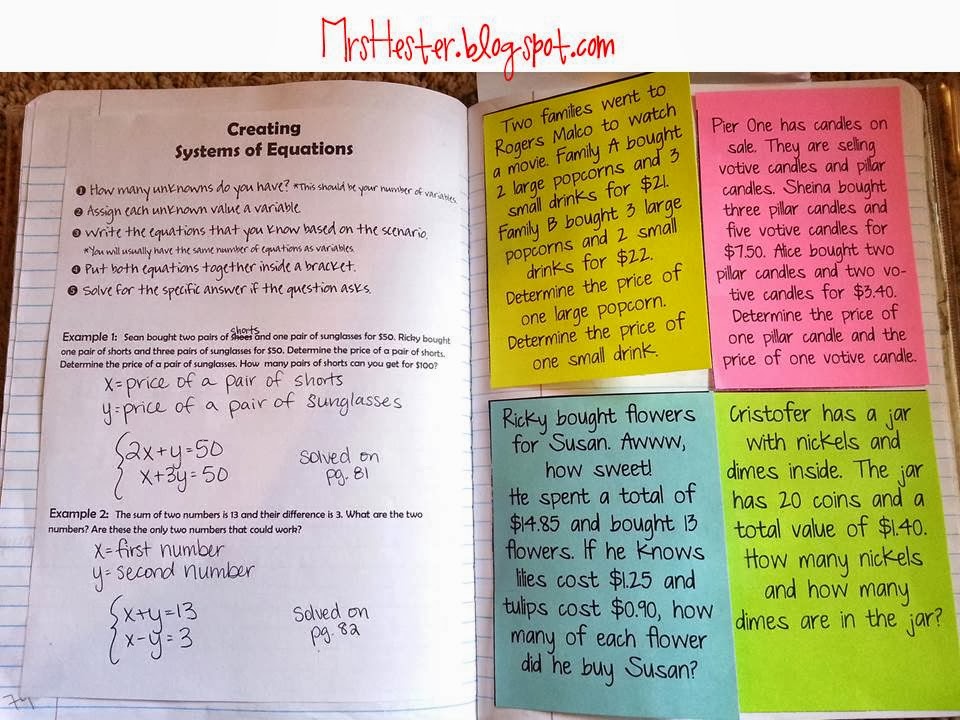 MrsHester.blogspot.com
Creating
Systems of Equations
❶ How many unknowns do you have? *This should be your number of variables.
❷ Assign each unknown value a variable.
❸ Write the equations that you know based on the scenario.
*You will usually have the same number of equations as variables.
❹ Put both equations together inside a bracket.
❺ Solve for the specific answer if the question asks.
shorts
Example 1: Sean bought two pairs of shoes and one pair of sunglasses for $50. Ricky bought
one pair of shorts and three pairs of sunglasses for $50. Determine the price of a pair of shorts.
Determine the price of a pair of sunglasses. How many pairs of shorts can you get for $100?
x=price of a pair of shorts
y=price of a pair of sunglasses
2x+y=50
x+3y=50
solved on
pg. 81
Example 2: The sum of two numbers is 13 and their difference is 3. What are the two
numbers? Are these the only two numbers that could work?
x=first number
y=second number
x+y=13
x-y=3
solved on
pg. 82
74
Two families went to
Rogers Malco to watch
a movie. Family A bought
2 large popcorns and 3
small drinks for $21.
Family B bought 3 large
popcorns and 2 small
drinks for $22.
Determine the price of
one large popcorn.
Determine the price of
one small drink.
Pier One has candles on
sale. They are selling
votive candles and pillar
candles. Sheina bought
three pillar candles and
five votive candles for
$7.50. Alice bought two
pillar candles and two vo-
tive candles for $3.40.
Determine the price of
one pillar candle and the
price of one votive candle.
Ricky bought flowers
for Susan. Awww,
how sweet!
He spent a total of
$14.85 and bought 13
flowers. If he knows
lilies cost $1.25 and
tulips cost $0.90, how
many of each flower
did he buy Susan?
Cristofer has a jar
with nickels and
dimes inside. The jar
has 20 coins and a
total value of $1.40.
How many nickels
and how many
dimes are in the jar?